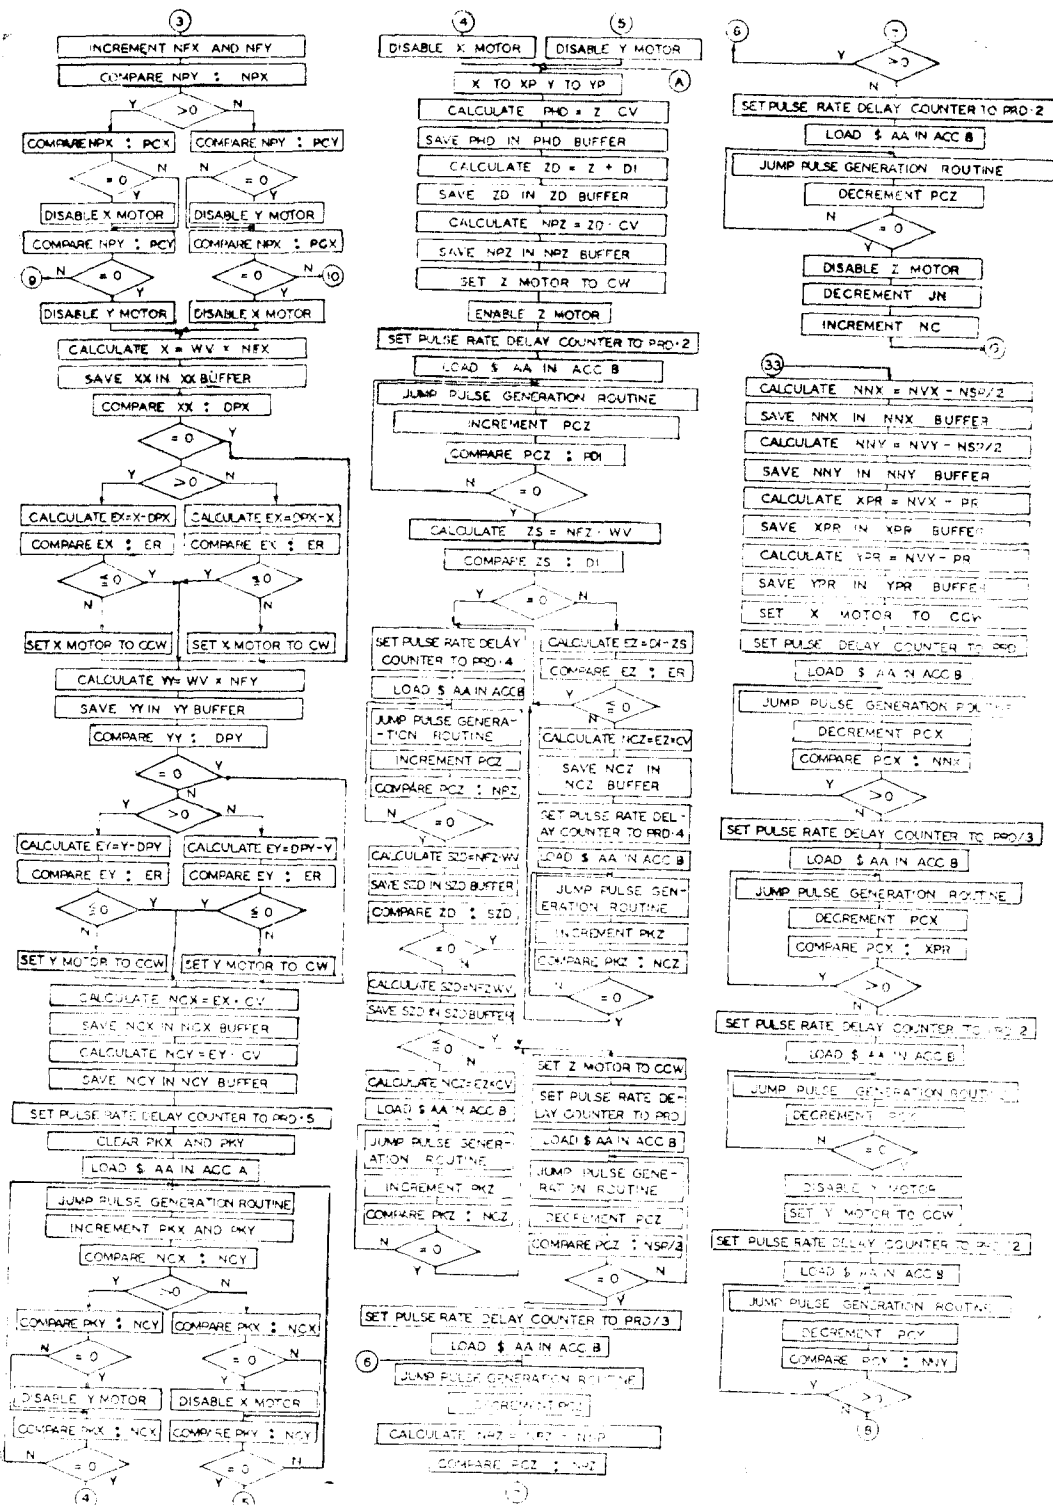 3
INCREMENT NFX AND NFY
COMPARE NPY : NPX
Y >0 N
COMPARE NPX : PCX COMPARE NPY : PCY
= 0 N N = 0
Y Y
DISABLE X MOTOR DISABLE Y MOTOR
COMPARE NPY : PCY COMPARE NPX : PCX
9 N = 0 = 0 N 10
Y Y
DISABLE Y MOTOR DISABLE X MOTOR
CALCULATE X = WV × NFX
SAVE XX IN XX BUFFER
COMPARE XX : DPX
= 0 Y
Y >0 N
CALCULATE EX=X-DPX CALCULATE EX=DPX-X
COMPARE EX : ER COMPARE EX : ER
≤ 0 Y Y
N N
SET X MOTOR TO CCW SET X MOTOR TO CW
CALCULATE YY= WV × NFY
SAVE YY IN YY BUFFER
COMPARE YY : DPY
= 0 Y
N
Y >0 N
CALCULATE EY=Y-DPY CALCULATE EY=DPY-Y
COMPARE EY : ER COMPARE EY : ER
≤ 0 Y Y ≤ 0
N N
SET Y MOTOR TO CCW SET Y MOTOR TO CW
CALCULATE NCX = EX · CV
SAVE NCX IN NCX BUFFER
CALCULATE NCY = EY · CV
SAVE NCY IN NCY BUFFER
SET PULSE RATE DELAY COUNTER TO PRD·5
CLEAR PKX AND PKY
LOAD $ AA IN ACC A
JUMP PULSE GENERATION ROUTINE
INCREMENT PKX AND PKY
COMPARE NCX : NCY
Y >0 N
COMPARE PKY : NCY COMPARE PKX : NCX
N = 0 = 0 N
Y Y
DISABLE Y MOTOR DISABLE X MOTOR
COMPARE PKX : NCX COMPARE PKY : NCY
N = 0 = 0 N
Y Y
4 5
4 5
DISABLE X MOTOR DISABLE Y MOTOR
X TO XP Y TO YP A
CALCULATE PHD = Z CV
SAVE PHD IN PHD BUFFER
CALCULATE ZD = Z + DI
SAVE ZD IN ZD BUFFER
CALCULATE NPZ = ZD · CV
SAVE NPZ IN NPZ BUFFER
SET Z MOTOR TO CW
ENABLE Z MOTOR
SET PULSE RATE DELAY COUNTER TO PRD·2
LOAD $ AA IN ACC B
JUMP PULSE GENERATION ROUTINE
INCREMENT PCZ
COMPARE PCZ : PDI
N = 0
Y
CALCULATE ZS = NFZ · WV
COMPARE ZS : DI
Y = 0 N
SET PULSE RATE DELAY COUNTER TO PRD·4
LOAD $ AA IN ACC B
JUMP PULSE GENERA-
-TION ROUTINE
INCREMENT PCZ
COMPARE PCZ : NPZ
N = 0
Y
CALCULATE SZD=NFZ·WV
SAVE SZD IN SZD BUFFER
COMPARE ZD : SZD
= 0 Y
N
CALCULATE SZD=NFZ·WV
SAVE SZD IN SZD BUFFER
≤ 0 Y
N
CALCULATE NCZ=EZ×CV
LOAD $ AA IN ACC B
JUMP PULSE GENER-
ATION ROUTINE
INCREMENT PKZ
COMPARE PKZ : NCZ
N = 0
Y
CALCULATE EZ=DI-ZS
COMPARE EZ : ER
Y ≤ 0
N
CALCULATE NCZ=EZ×CV
SAVE NCZ IN
NCZ BUFFER
SET PULSE RATE DEL-
AY COUNTER TO PRD·4
LOAD $ AA IN ACC B
JUMP PULSE GEN-
ERATION ROUTINE
INCREMENT PKZ
COMPARE PKZ : NCZ
N = 0
Y
SET Z MOTOR TO CCW
SET PULSE RATE DE-
LAY COUNTER TO PRD
LOAD $ AA IN ACC B
JUMP PULSE GENE-
RATION ROUTINE
DECREMENT PCZ
COMPARE PCZ : NSP/2
= 0 N
Y
SET PULSE RATE DELAY COUNTER TO PRD/3
LOAD $ AA IN ACC B
6
JUMP PULSE GENERATION ROUTINE
DECREMENT PCZ
CALCULATE NPZ = NPZ - NSP
COMPARE PCZ : NPZ
6
Y >0
N
SET PULSE RATE DELAY COUNTER TO PRD·2
LOAD $ AA IN ACC B
JUMP PULSE GENERATION ROUTINE
DECREMENT PCZ
N = 0
Y
DISABLE Z MOTOR
DECREMENT JN
INCREMENT NC
33
CALCULATE NNX = NVX - NSP/2
SAVE NNX IN NNX BUFFER
CALCULATE NNY = NVY - NSP/2
SAVE NNY IN NNY BUFFER
CALCULATE XPR = NVX - PR
SAVE XPR IN XPR BUFFER
CALCULATE YPR = NVY - PR
SAVE YPR IN YPR BUFFER
SET X MOTOR TO CCW
SET PULSE DELAY COUNTER TO PRD
LOAD $ AA IN ACC B
JUMP PULSE GENERATION ROUTINE
DECREMENT PCX
COMPARE PCX : NNX
Y >0
N
SET PULSE RATE DELAY COUNTER TO PRD/3
LOAD $ AA IN ACC B
JUMP PULSE GENERATION ROUTINE
DECREMENT PCX
COMPARE PCX : XPR
Y >0
N
SET PULSE RATE DELAY COUNTER TO PRD·2
LOAD $ AA IN ACC B
JUMP PULSE GENERATION ROUTINE
DECREMENT PCX
N = 0
Y
DISABLE MOTOR
SET Y MOTOR TO CCW
SET PULSE RATE DELAY COUNTER TO
LOAD $ AA IN ACC B
JUMP PULSE GENERATION ROUTINE
DECREMENT PCY
COMPARE PCY : NNY
Y >0
N
8